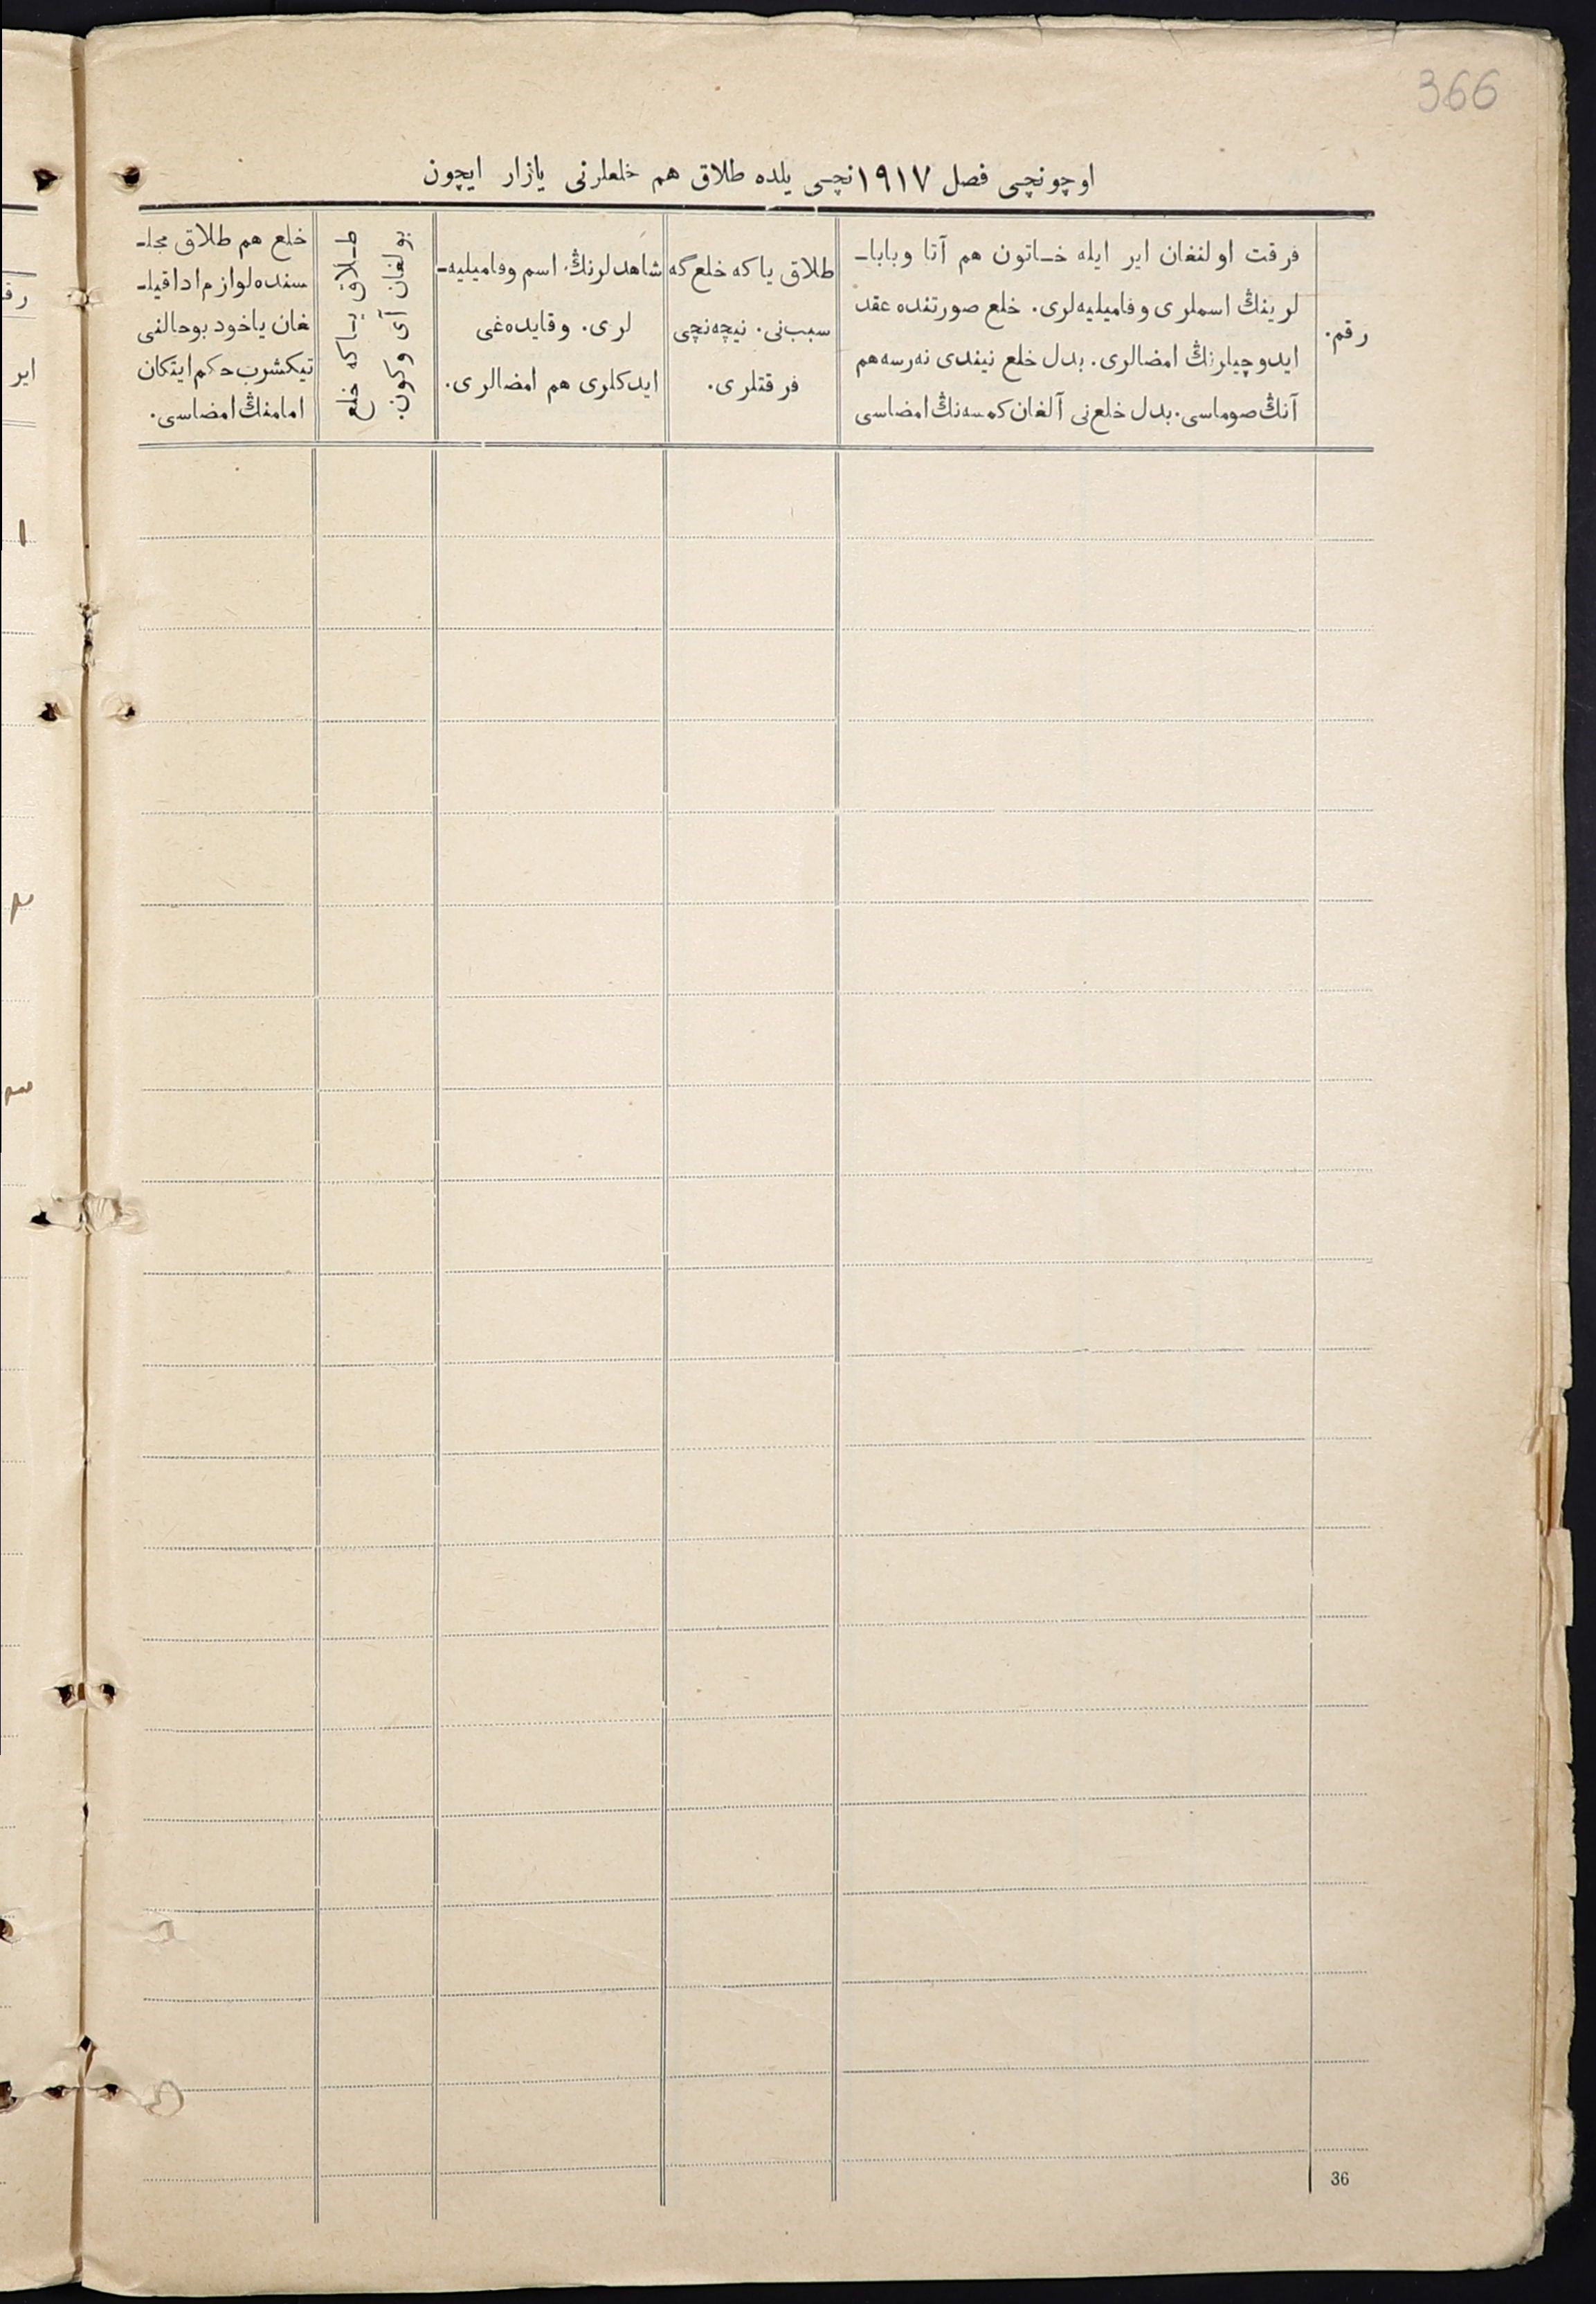 366
اوچونچی فصل ١٩١٧نچی یلده طلاق هم خلعلرنی یازار ایچون
رقم.
فرقت اولنغان ایر ایله خـاتون هم آتا وبابا‌ـ
لرینڭ اسملری وفامیلیه‌لری. خلع صورتنده عقد
ایدوچیلرنڭ امضالری. بدل خلع نیندی نه‌رسه هم
آنڭ صوماسی. بدل خلع‌نی آلغان کمسه‌نڭ امضاسی
طلاق یاکه خلع گه
سبب‌نی. نیچه‌نچی
فرقتلری.
شاهدلرنڭ اسم وفامیلیه‌ـ
لری. وقایده‌غی
ایدکلری هم امضالری.
طـلاق یـاکه خلع
بولغان آی وکون.
خلع هم طلاق مجلـ
سنده لوازم ادا قیلـ
غان یاخود بوحالنی
تیکشرب حکم ایتکان
امامنڭ امضاسی.
36
ایر